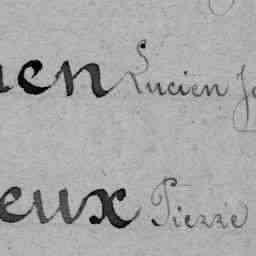 en Lucien
eux Pierre